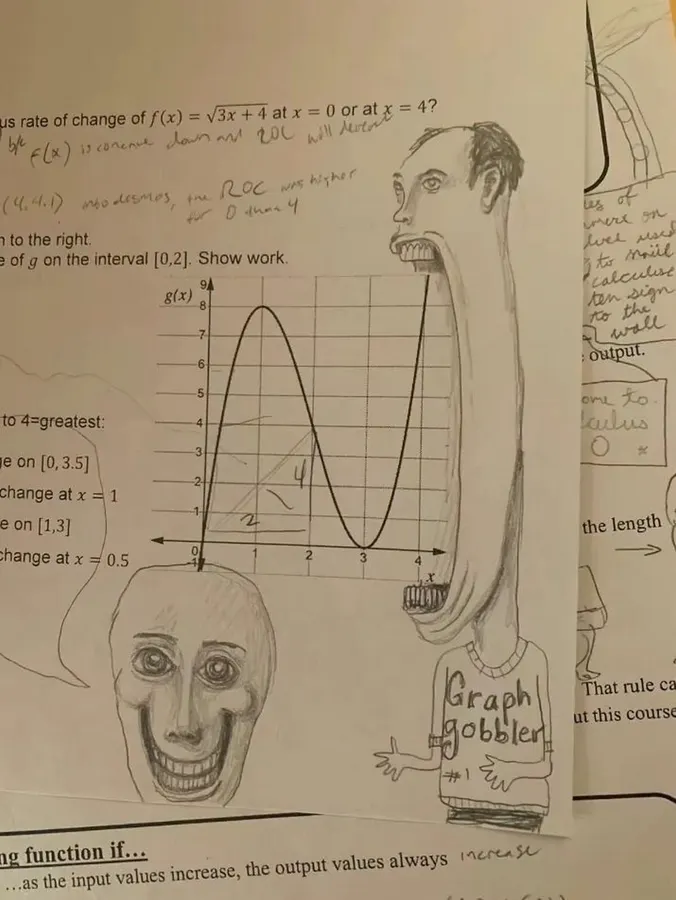 us rate of change of f(x) = √3x + 4 at x = 0 or at x = 4?
b/c f(x) is concave down and ROC will
(4, 4.1) into desmos, the ROC was higher
for 0 than 4
n to the right.
e of g on the interval [0,2]. Show work.
g(x)
9
8
7
6
5
4
3
2
1
0
-1
1
2
3
4
x
4
2
to 4=greatest:
ge on [0, 3.5]
change at x = 1
e on [1,3]
change at x = 0.5
Graph
gobbler
#1
of
were on
used
to
calculus
ten sign
to the
wall
output.
ome to
culus
the length
That rule ca
ut this course
ng function if...
...as the input values increase, the output values always increase